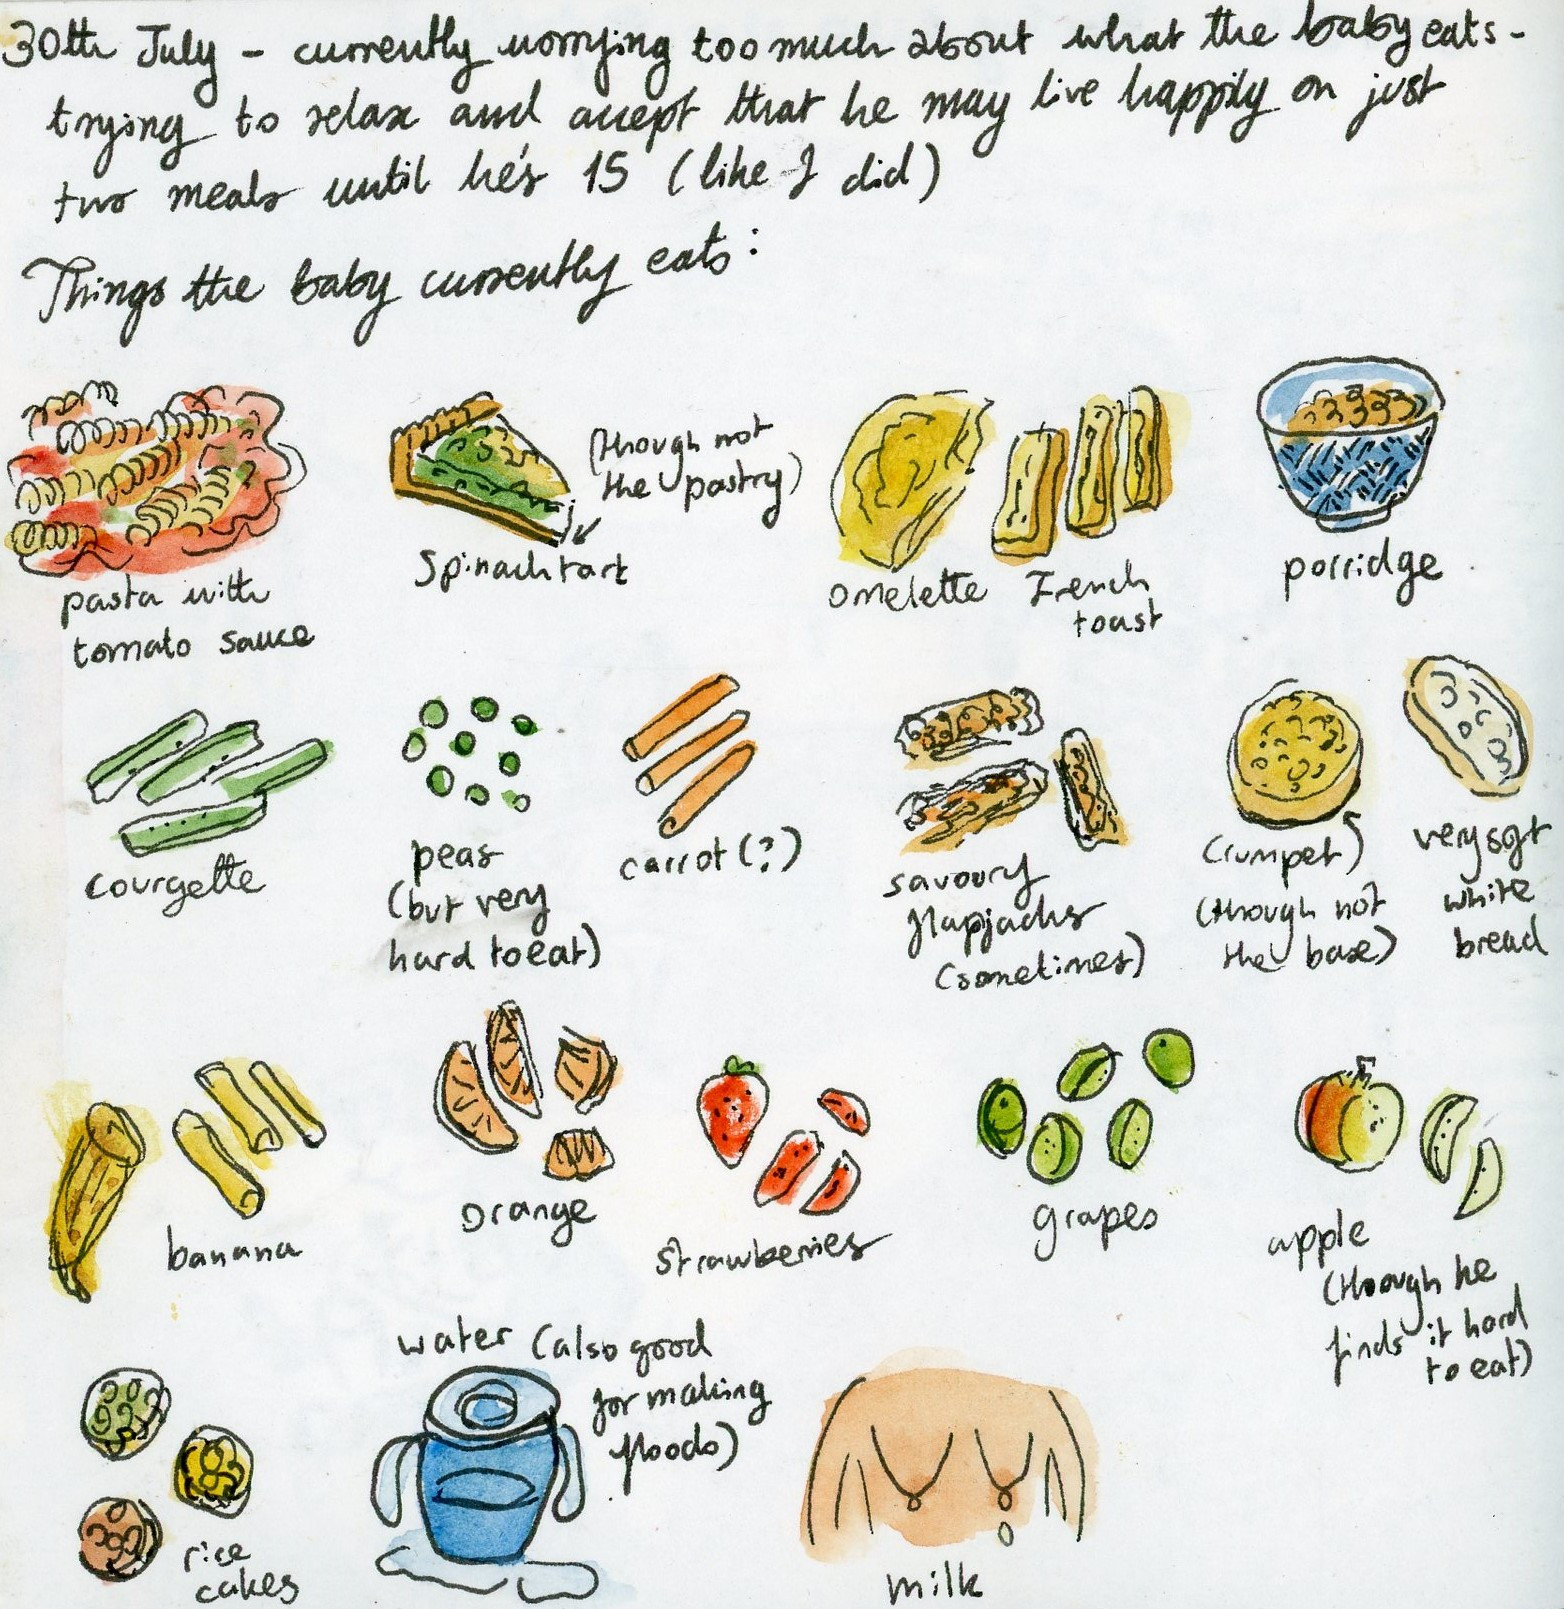 30th July - currently worrying too much about what the baby eats -
trying to relax and accept that he may live happily on just
two meals until he's 15 (like I did)
Things the baby currently eats:
pasta with
tomato sauce
Spinach tart
(though not
the pastry)
omelette
French
toast
porridge
courgette
peas
(but very
hard to eat)
carrot (?)
savoury
flapjacks
(sometimes)
crumpet)
(though not
the base)
very soft
white
bread
banana
orange
strawberries
grapes
apple
(though he
finds it hard
to eat)
rice
cakes
water (also good
for making
floods)
milk